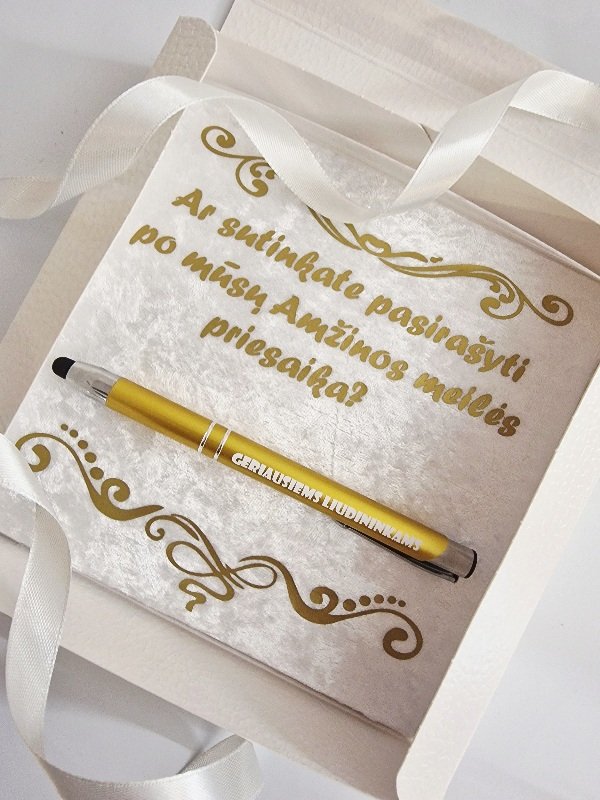 Ar sutinkate pasirašyti
po mūsų Amžinos meilės
priesaika?
GERIAUSIEMS LIUDININKAMS